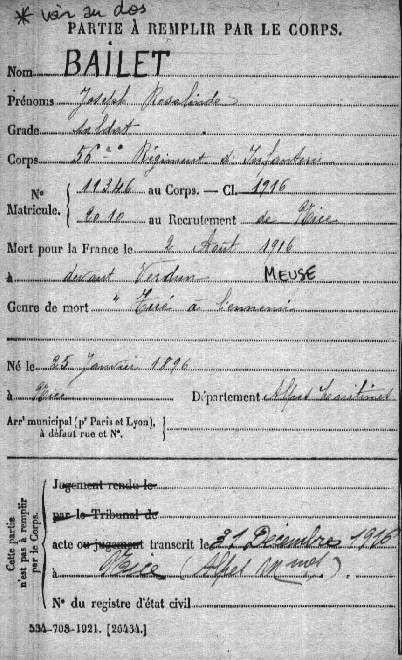 * voir au dos
PARTIE À REMPLIR PAR LE CORPS.
Nom BAILET
Prénoms Joseph
Grade soldat
Corps 56e Régiment d'Infanterie
Nº Matricule. 11346 au Corps. — Cl. 1916
2010 au Recrutement de Nice
Mort pour la France le 2 Août 1916
à devant Verdun MEUSE
Genre de mort " Tué à l'ennemi
Né le 25 Janvier 1896
à Nice Département Alpes Maritimes
Arrt municipal (pr Paris et Lyon),
à défaut rue et Nº.
Cette partie n'est pas à remplir par le Corps.
Jugement rendu le
par le Tribunal de
acte ou jugement transcrit le 31 Décembre 1916
à Nice (Alpes Mmes).
Nº du registre d'état civil
534-708-1921. [26434.]